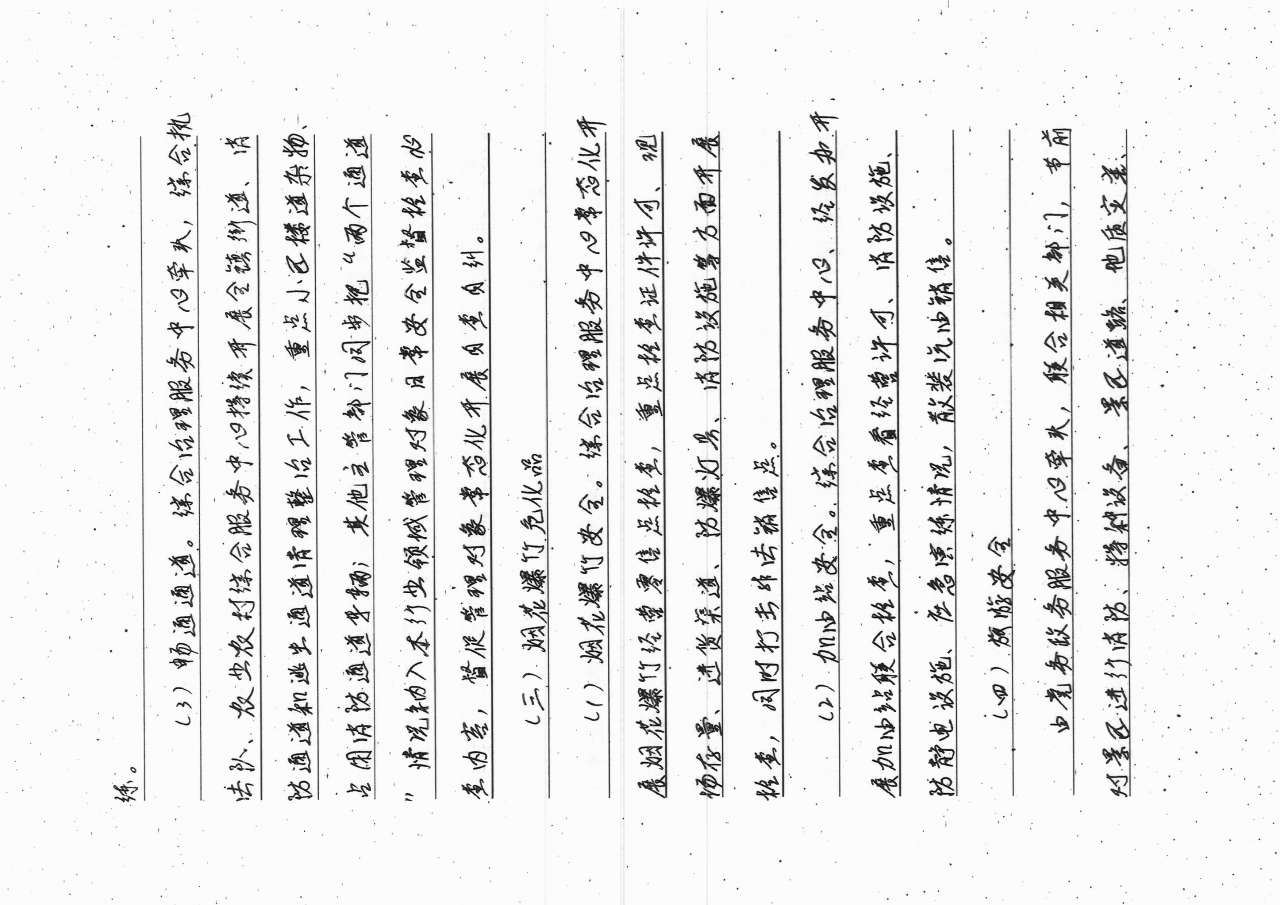 练。
(3) 畅通通道。综合治理服务中心牵头，综合执
法队、农业农村综合服务中心持续开展全镇街道、消
防通道和逃生通道清理整治工作，重点小区楼道杂物、
占用消防通道车辆；其他主管部门同步把“两个通道
”情况纳入本行业领域管理对象日常安全监督检查必
查内容，督促管理对象常态化开展自查自纠。
(三) 烟花爆竹危化品
(1) 烟花爆竹安全。综合治理服务中心常态化开
展烟花爆竹经营零售点检查，重点检查证件许可、现
场存量、进货渠道、防爆灯具、消防设施等方面开展
检查，同时打击非法销售点。
(2) 加油站安全。综合治理服务中心、经发办开
展加油站联合检查，重点查看经营许可、消防设施、
防静电设施、应急演练情况，散装汽油销售。
(四) 旅游安全
由党务政务服务中心牵头，联合相关部门，节前
对景区进行消防、特种设备、景区道路、地质灾害、